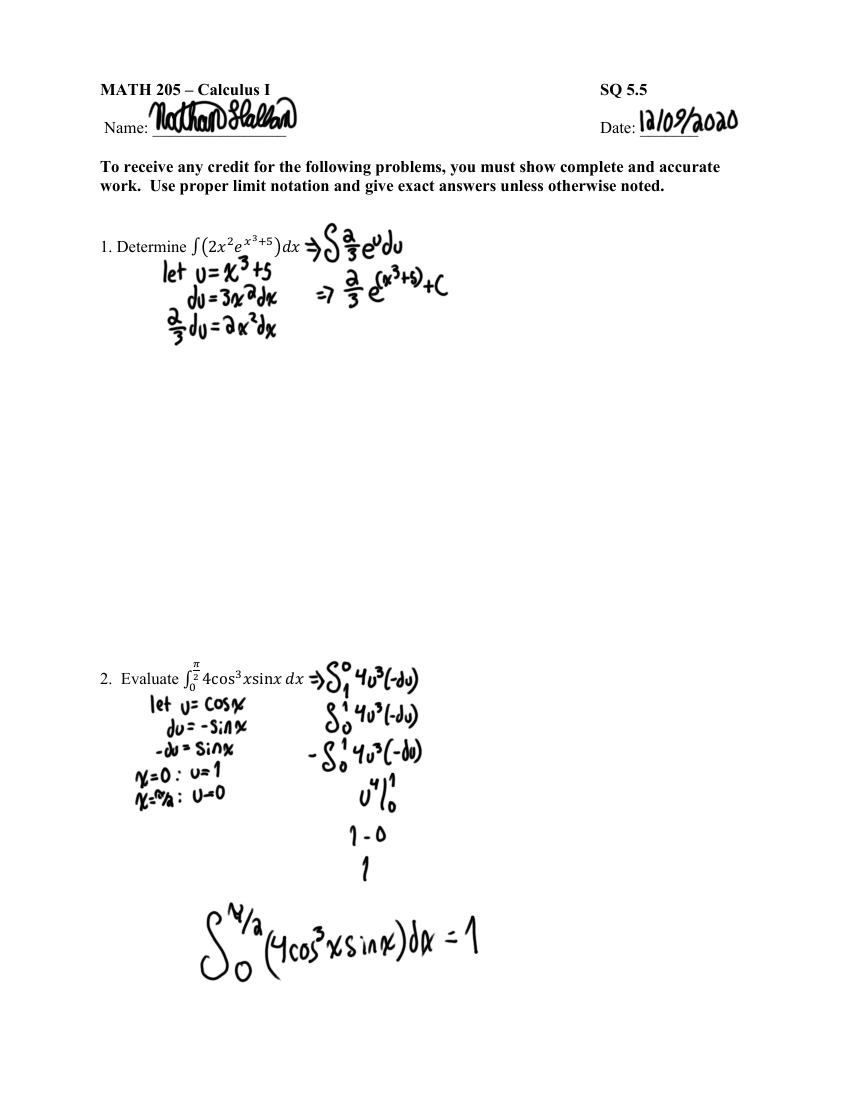 MATH 205 – Calculus I SQ 5.5
Name: Nathan Date: 12/09/2020
To receive any credit for the following problems, you must show complete and accurate
work. Use proper limit notation and give exact answers unless otherwise noted.
1. Determine ∫(2x²e^(x³+5))dx ⇒ ∫ 2/3 e^u du
let u = x³+5
du = 3x²dx ⇒ 2/3 e^(x³+5) + C
2/3 du = 2x²dx
2. Evaluate ∫₀^(π/2) 4cos³xsinx dx ⇒ ∫₁⁰ 4u³(-du)
let u = cosx
du = -sinx ∫₀¹ 4u³(-du)
-du = sinx -∫₀¹ 4u³(-du)
x=0: u=1
x=π/2: u=0 u⁴|₀¹
1-0
1
∫₀^(π/2) (4cos³xsinx)dx = 1